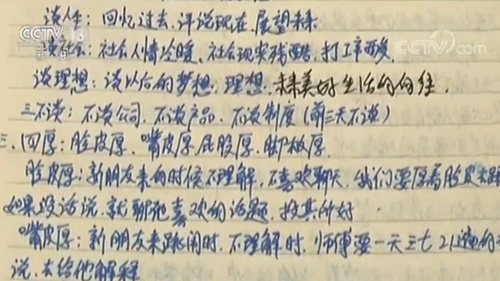 CCTV 13
CCTV.com
谈人生：回忆过去、评说现在、展望未来
谈社会：社会人情冷暖、社会现实残酷，打工辛酸
谈理想：谈以后的梦想、理想，未来美好生活的向往
三不谈：不谈公司、不谈产品、不谈制度（前三天不谈）
三、四厚：脸皮厚、嘴皮厚、屁股厚、脚板厚
脸皮厚：新朋友来的时候不理解，不喜欢聊天，我们要厚着脸皮去跟
如果没话说，就聊他喜欢的话题，投其所好
嘴皮厚：新朋友来跳闹时，不理解时，师傅要一天三七21遍的
说，去给他解释